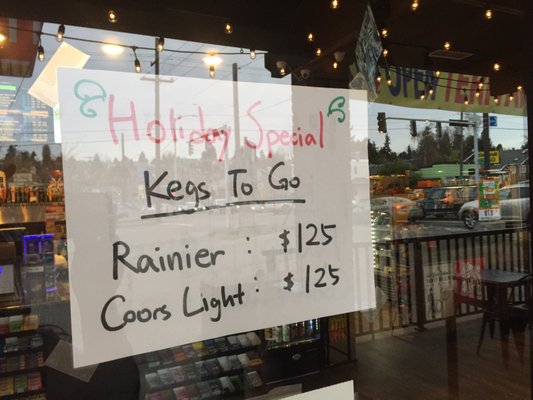 Holiday Special
Kegs To Go
Rainier : $125
Coors Light : $125
OPEN